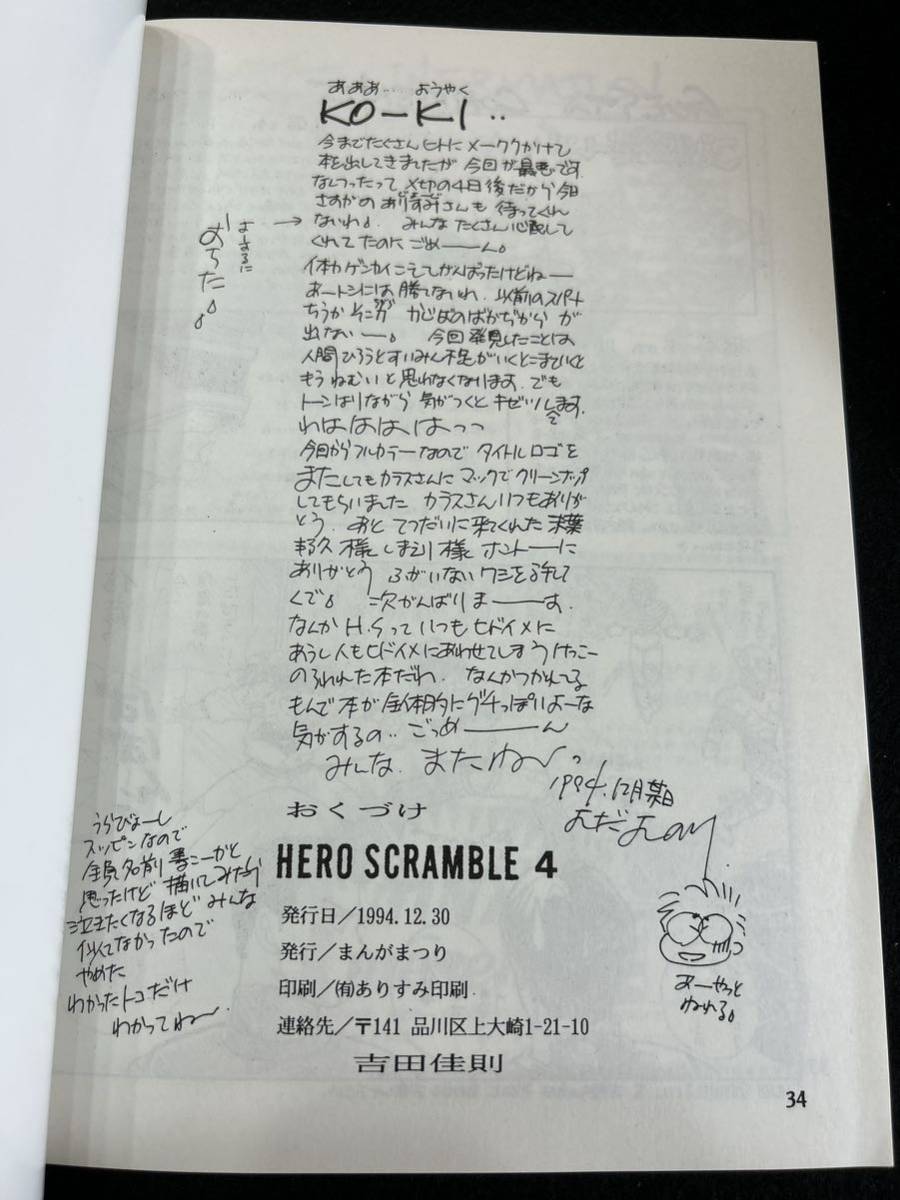 あああ… ようやく
KO-KI‥
今までたくさんヒトにメーワクかけて
本を出してきましたが 今回が最悪です.
なんつったって 〆切の4日後だから今日
さすがの ありすみさんも 待ってくれ
ないわ。 みんな たくさん心配して
くれてたのに ごめーーん。
→
よーするに
おちた。
体力ゲンカイこえてがんばったけどねー
あートシには 勝てないわ. 以前のスパート
ちうか かじばのばかぢから が
出ないー。 今回 発見したことは
人間ひろうとすいみん不足がいくとこまでいくと
もうねむいと思わなくなります. でも
トーンはりながら 気がつくと キゼツします.
わはははは っっ
今回からフルカラーなので タイトルロゴを
またしてもカラスさんに マックでクリーンナップ
してもらいました カラスさんいつもありが
とう. あと てつだいに来てくれた
様 しまえり様 ホントーーに
ありがとう ふがいない ワシを許して
くで。 次がんばりまーーす.
なんか H.Sって いつもヒドイメに
あうし人もヒドイメにあわせてしまうけっこー
のろわれた本だわ. なんかつかれてる
もんで 本が 全体的にグチっぽいよーな
気がするの‥ ごっめーーーん
みんな. またね〜っ
1994.12月某日
よだよan
あーやっと
ねれる。
うらびょーし
スッピンなので
全員名前 書こーかと
思ったけど 描いてみたら
泣きたくなるほど みんな
似てなかったので
やめた
わかったトコだけ
わかってね〜.
おくづけ
HERO SCRAMBLE 4
発行日/1994.12.30
発行/まんがまつり
印刷/㈲ありすみ印刷
連絡先/〒141 品川区上大崎1-21-10
吉田佳則
34